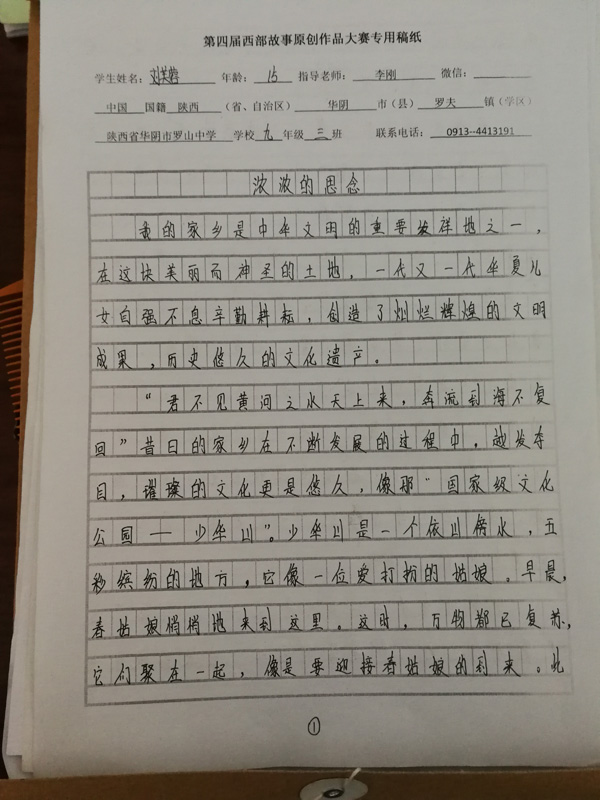 第四届西部故事原创作品大赛专用稿纸
学生姓名： 年龄：15 指导老师：李刚 微信：
中国 国籍 陕西 （省、自治区） 华阴 市（县） 罗夫 镇（学区）
陕西省华阴市罗山中学 学校 九 年级 三 班 联系电话：0913--4413191
浓浓的思念
我的家乡是中华文明的重要发祥地之一，
在这块美丽而神圣的土地，一代又一代华夏儿
女自强不息辛勤耕耘，创造了灿烂辉煌的文明
成果，历史悠久的文化遗产。
“君不见黄河之水天上来，奔流到海不复
回”昔日的家乡在不断发展的过程中，越发夺
目，璀璨的文化更是悠久，像那“国家级文化
公园——少华山”。少华山是一个依山傍水，五
彩缤纷的地方，它像一位爱打扮的姑娘。早晨，
春姑娘悄悄地来到这里。这时，万物都已复苏，
它们聚在一起，像是要迎接春姑娘的到来。此
①